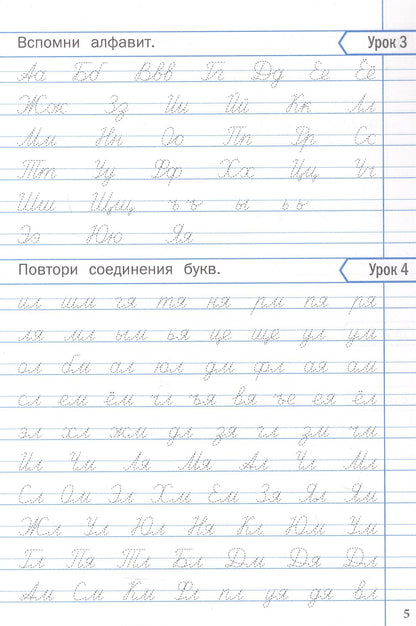 Вспомни алфавит.
Урок 3
Аа Бб Ввв Гг Дд Ее Ёё
Жж Зз Ии Йй Кк Лл
Мм Нн Оо Пп Рр Сс
Тт Уу Фф Хх Цц Чч
Шш Щщ ъ ъ ы ь ь
Ээ Юю Яя
Повтори соединения букв.
Урок 4
ил шм гя тя ня рм пя ря
ля мл ым ья це ще ул ум
ол бм ал юл дм фл ая ам
сл ем ём чл ъя вя ъе ея ёл
эл хл жм дл зя гл зм чм
Ил Чм Ля Мя Ал Чл Мл
Сл Ом Эл Хм Ем Зя Ял Ям
Жл Ул Юл Ня Кл Юм Ум
Гл Пя Тл Бл Дм Дя Дл
Ам См Км Фл пл уя дя вл
5